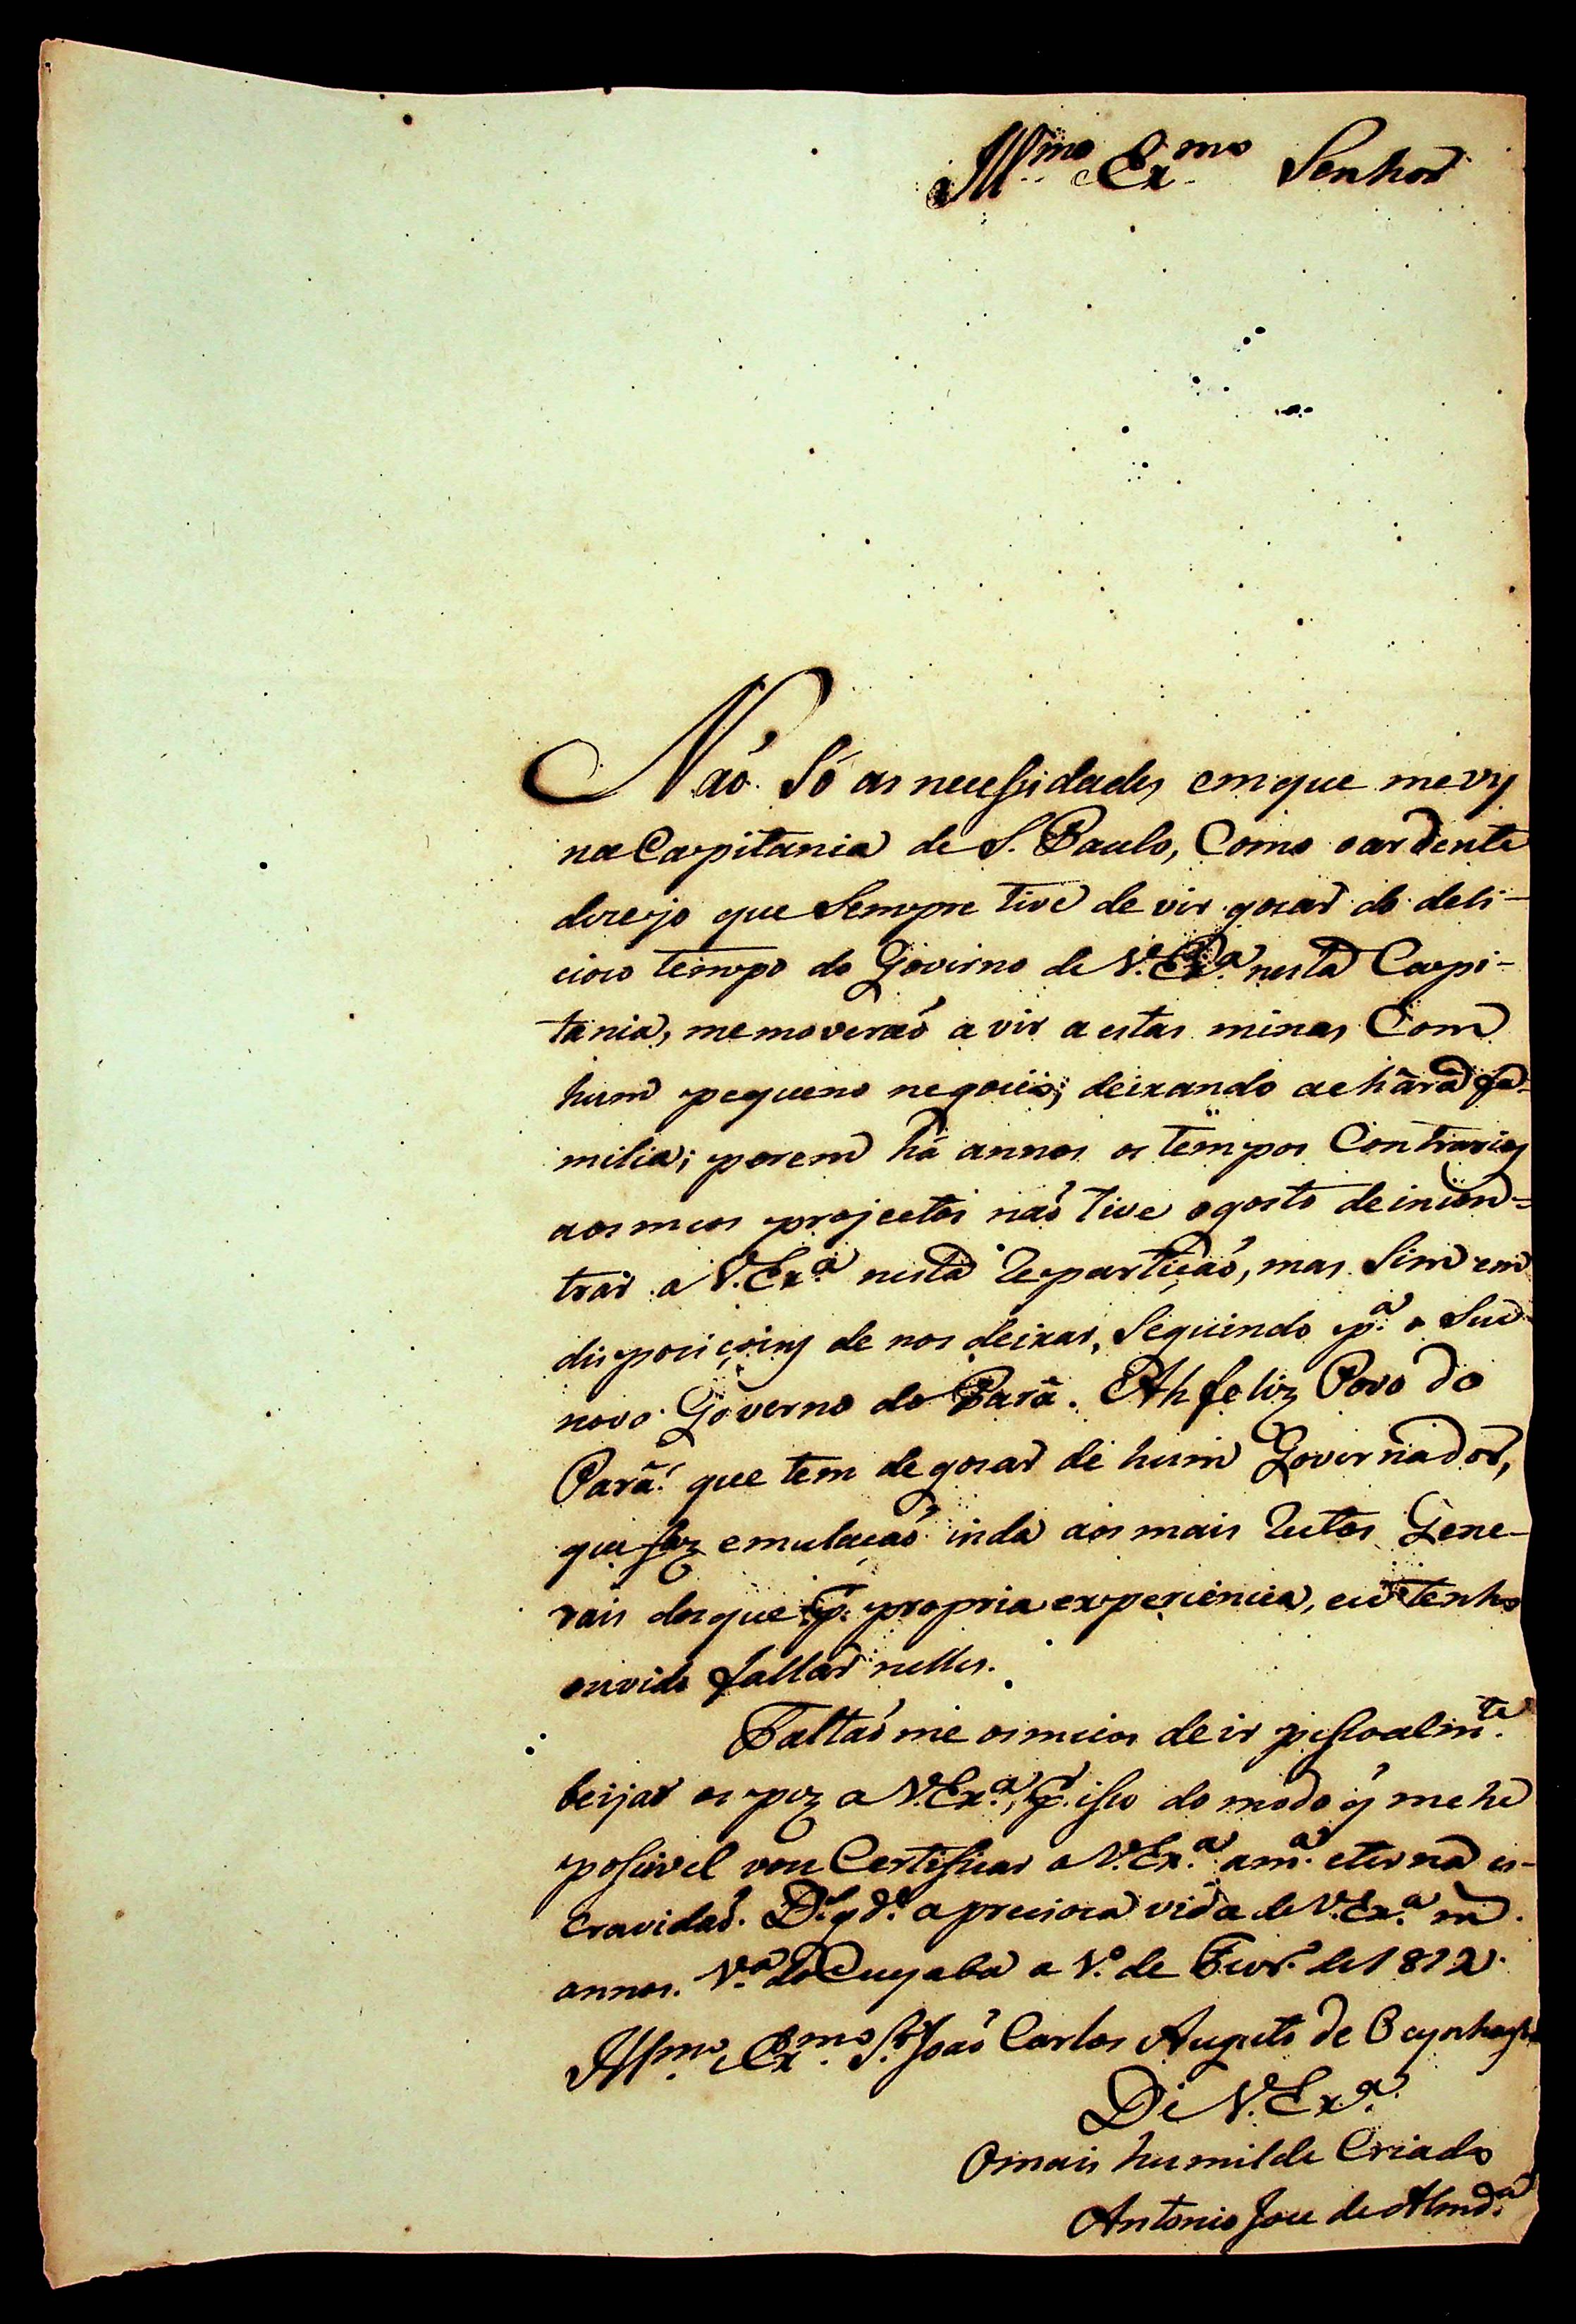 Illmo Exmo Senhor
Naõ Só as necessidades emque mevy
naCapitania de S. Paulo, Como oardente
dezejo que Sempre tive de vir gozar do deli-
ciozo tempo do Governo de V. Exa. nesta Capi-
tania, memoveraõ a vir a estas minas Com
hum pequeno negocio, deixando achara fa-
milia; porem há annos os tempos Contrarios
aosmeos projectos naó tive ogosto deincon-
trar a V. Exa. nesta Repartiçaó, mas Sim em
dispoziçoins de nos deixar, Seguindo pa. o Seu
novo Governo do Pará. Ah feliz Povo do
Pará! que tem degozar de hum Governador,
que faz emulaçaó inda aos mais Rectos Gene-
rais dosque pr. propria experiencia, eu tenho
ouvido fallar nelles.
Faltaó me osmeios deir pessoalmte.
beijar os pez a V. Exa., pr. isso do modo q' mehe
possivel vou Certificar a V. Exa. ama. eterna es-
cravidaó. Ds. gde. aprecioza vida de V. Exa. ms.
annos. Va. do Cuyaba a 1o. de Fevro. de 1812.
Illmo. Exmo. Sr. Joaó Carlos Augusto de Oeynhaus
De V. Exa.
Omais humilde Criado
Antonio Joze de Almda.